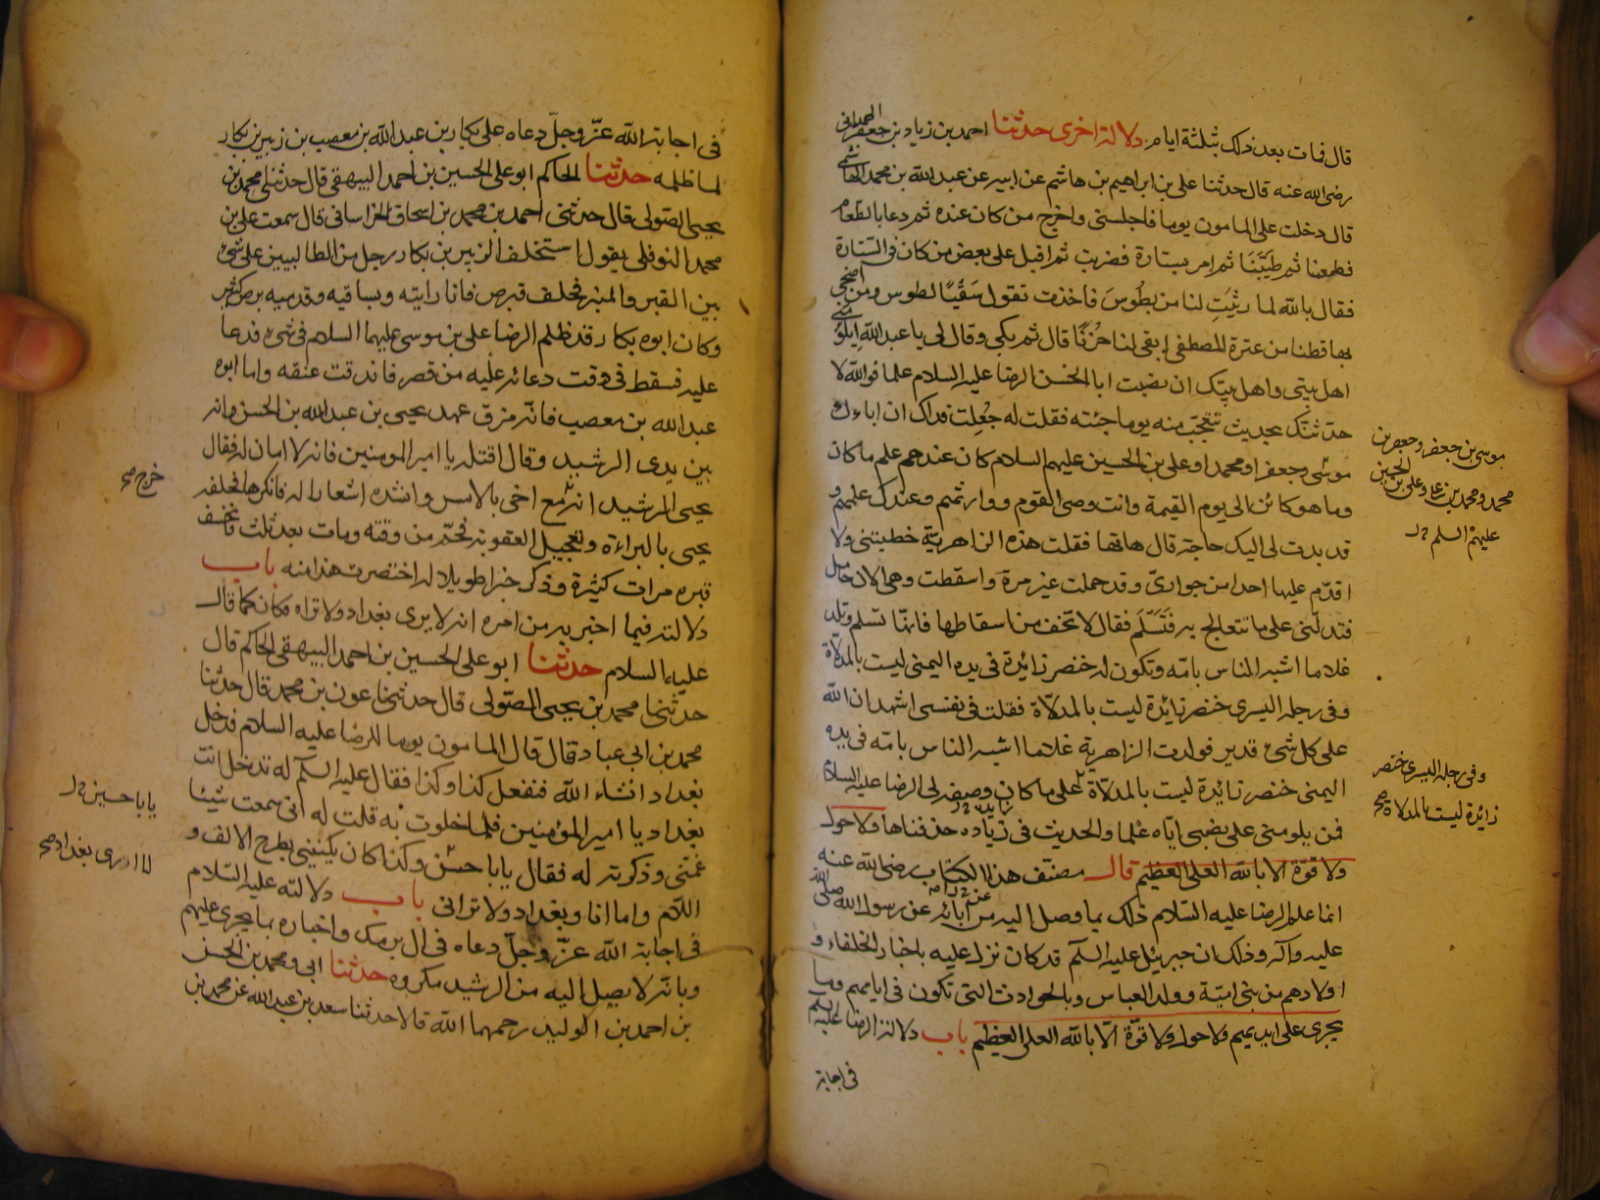 قال فمات بعد ذلك بثلثة ايام دلالة اخرى حدثنا احمد بن زياد بن جعفر الهمداني
رضى الله عنه قال حدثنا على بن ابراهيم بن هاشم عن ابيه عن عبد الله بن محمد الهاشمى
قال دخلت على المامون يوما فاجلسنى واخرج من كان عنده ثم دعا بالطعام
فطعمنا ثم طيبنا ثم امر بستارة فضربت ثم اقبل على بعض من كان فى الستارة
فقال بالله لما رثيت لنا من بطوس فاخذت تقول سقيا لطوس ومن اضحى
بها قطنا من عترة المصطفى ابقى لنا حزنا قال ثم بكى وقال لى يا عبد الله ايلومنى
اهل بيتى واهل بيتك ان نصبت ابا الحسن الرضا عليه السلام علما فوالله لا
حدثنك بحديث تتعجب منه يوما جئته فقلت له جعلت فداك ان اباءك
موسى وجعفرا ومحمدا وعلى بن الحسين عليهم السلام كان عندهم علم ما كان
وما هو كائن الى يوم القيمة وانت وصى القوم ووارثهم وعندك علمهم و
قد بدت لى اليك حاجة قال هاتها فقلت هذه الزاهرية خطيتنى ولا
اقدم عليها احدا من جوارى وقد حملت غير مرة واسقطت وهى الان حامل
فتدلنى على ما تتعالج به فتسلم فقال لا تخف من اسقاطها فانها تسلم وتلد
غلاما اشبه الناس بامه وتكون له خنصر زائدة فى يده اليمنى ليست بالمدلاة
وفى رجله اليسرى خنصر زائدة ليست بالمدلاة فقلت فى نفسى اشهد ان الله
على كل شئ قدير فولدت الزاهرية غلاما اشبه الناس بامه فى يده
اليمنى خنصر زائدة ليست بالمدلاة على ما كان وصفه لى الرضا عليه السلام
فمن يلومنى على نصبى اياه علما والحديث فى زيادة حذفناها ولا حول
ولا قوة الا بالله العلى العظيم قال مصنف هذا الكتاب رضى الله عنه
انما علم الرضا عليه السلام ذلك بما وصل اليه من آبائه عن رسول الله صلى الله
عليه وآله وذلك ان جبرئيل عليه السلم قد كان نزل عليه باخبار الخلفاء و
اولادهم من بنى امية وولد العباس وبالحوادث التى تكون فى ايامهم وما
يجرى على ايديهم ولا حول ولا قوة الا بالله العلى العظيم باب دلالة الرضا عليه السلم
فى اجابة
موسى بن جعفر وجعفر بن
محمد ومحمد بن على وعلى بن الحسين
عليهم السلم
وفى رجله اليسرى خنصر
زائدة ليست بالمدلاة صح
فى اجابة الله عز وجل دعاه على بكار بن عبد الله بن مصعب بن زبير بن بكار
لما ظلمه حدثنا الحاكم ابو على الحسين بن احمد البيهقى قال حدثنى محمد بن
يحيى الصولى قال حدثنى احمد بن محمد بن اسحاق الخراسانى قال سمعت على بن
محمد النوفلى يقول استحلف الزبير بن بكار رجل من الطالبيين على شئ
بين القبر والمنبر فحلف فبرص فانا رايته وبساقيه وقدميه برص كثير
وكان ابوه بكار قد ظلم الرضا على بن موسى عليهما السلام فى شئ فدعا
عليه فسقط فى وقت دعائه عليه من قصر فاندقت عنقه واما ابوه
عبد الله بن مصعب فانه مزق عهد يحيى بن عبد الله بن الحسن وانه
بين يدى الرشيد وقال اقتله يا امير المومنين فانه لا امان له فقال
يحيى للرشيد انه مع اخى بالامس وانشده اشعارا له فانكرها فحلفه
يحيى بالبراءة وتعجيل العقوبة فحم من وقته ومات بعد ثلث فانخسف
قبره مرات كثيرة وذكر خبرا طويلا له اختصرت هذا منه باب
دلالته فيما اخبر به من امره انه لا يرى بغداد ولا تراه فكان كما قال
عليه السلام حدثنا ابو على الحسين بن احمد البيهقى الحاكم قال
حدثنا محمد بن يحيى الصولى قال حدثنا عون بن محمد قال حدثنا
محمد بن ابى عباد قال قال المامون يوما للرضا عليه السلام ندخل
بغداد انشاء الله فنفعل كذا وكذا فقال عليه السلم له تدخل انت
بغداد يا امير المؤمنين فلما خلوت به قلت له انى سمعت شيئا
غمنى وذكرته له فقال يابا حسن وكذا كان يكنينى بطرح الالف و
اللام وما انا وبغداد ولا ترانى باب دلالته عليه السلام
فى اجابة الله عز وجل دعاه فى ال برمك واخباره بما يجرى عليهم
وبانه لا يصل اليه من الرشيد مكروه حدثنا ابى ومحمد بن الحسن
بن احمد بن الوليد رحمهما الله قالا حدثنا سعد بن عبد الله عن محمد بن
خرج صح
يابا حسين
لا ارى بغداد صح